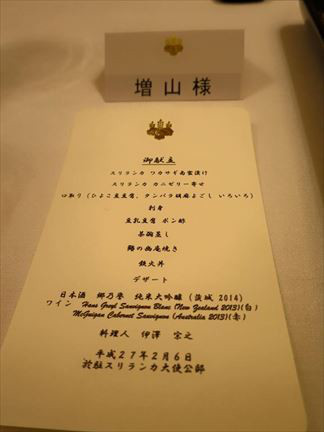 増山様
御献立
スリランカ ワカサギ南蛮漬け
スリランカ カニゼリー寄せ
口取り(ひよこ豆豆富、タンバラ胡麻よごし いろいろ)
刺身
豆乳豆富 ポン酢
茶碗蒸し
鰆の幽庵焼き
鉄火丼
デザート
日本酒 郷乃誉 純米大吟醸 (茨城 2014)
ワイン Hans Greyl Sauvignon Blanc (New Zealand 2013)(白)
McGuigan Cabernet Sauvignon (Australia 2013)(赤)
料理人 伊澤 宗之
平成27年2月6日
於駐スリランカ大使公邸